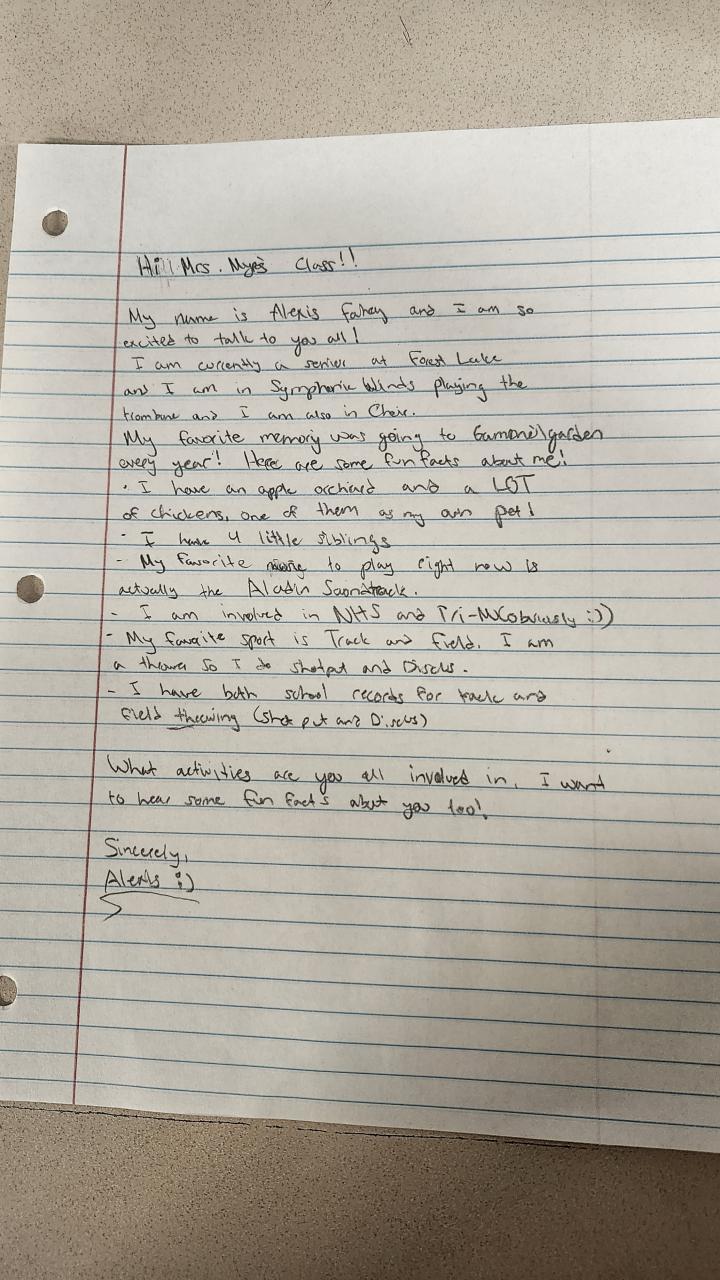 Hi!! Mrs. Mye's Class!!
My name is Alexis Fahey and I am so
excited to talk to you all!
I am currently a senior at Forest Lake
and I am in Symphonic Winds playing the
trombone and I am also in Choir.
My favorite memory was going to garden
every year! Here are some fun facts about me!
· I have an apple orchard and a LOT
of chickens, one of them as my own pet!
- I have 4 little siblings
- My favorite to play right now is
actually the Aladin Soundtrack.
- I am involved in NHS and Tri-M (obviously :))
- My favorite sport is Track and field. I am
a thrower so I do shotput and Discus.
- I have both school records for track and
field throwing (shot put and Discus)
What activities are you all involved in, I want
to hear some fun facts about you too!
Sincerely,
Alexis :)